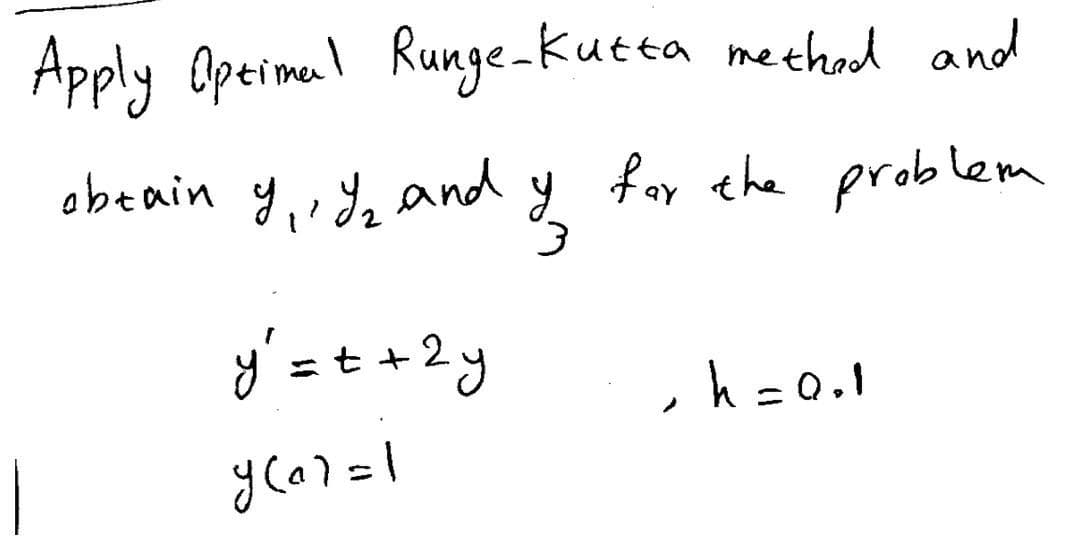 Apply Optimal Runge-Kutta method and
obtain y₁, y₂ and y₃ for the problem
y' = t + 2y , h = 0.1
y(0) = 1